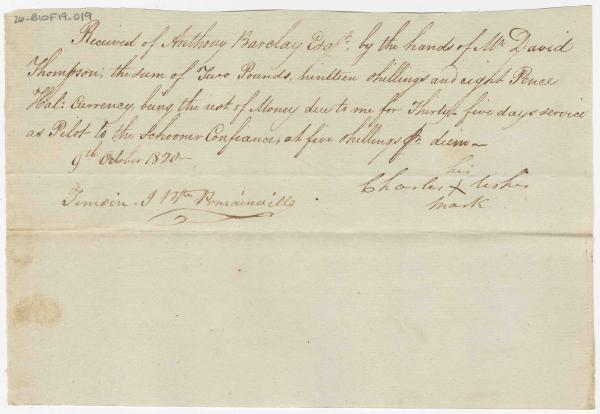 26-B10F19-019
Received of Anthony Barclay Esqr. by the hands of Mr David
Thompson, the sum of Two Pounds, nineteen shillings and eight Pence
Hal: Currency, being the rest of Money due to me for Thirty five days service
as Pilot to the Schooner Confiance, at five shillings pr diem
9th October 1820
his
Charles X
mark
Temoin - J Bte